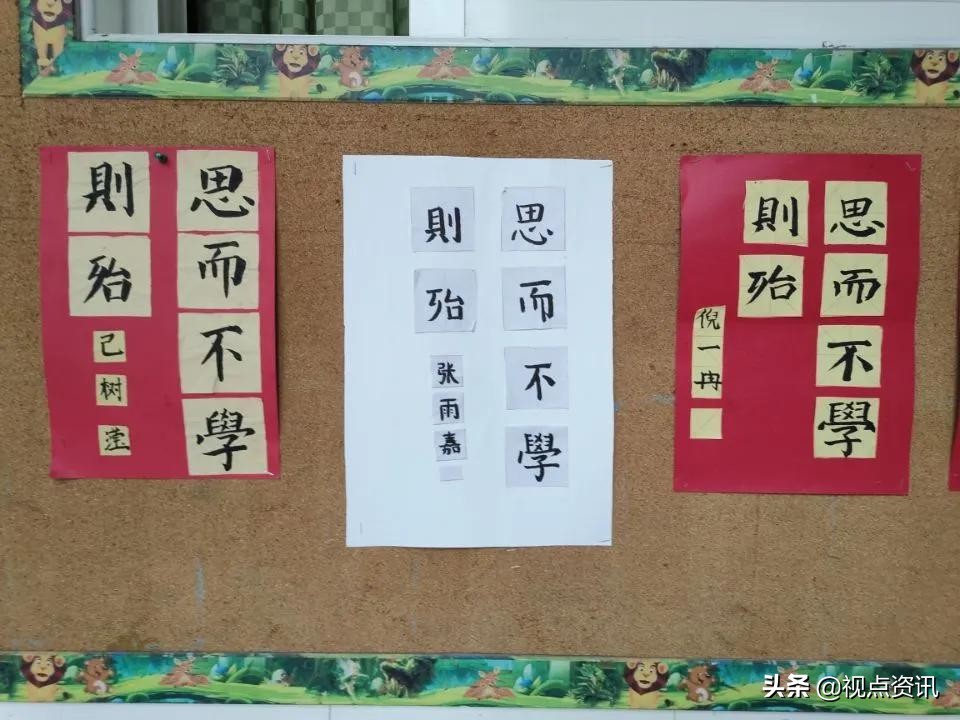 思而不學
則殆
己树滢
思而不學
則殆
张雨嘉
思而不學
則殆
倪一冉
头条 @视点资讯